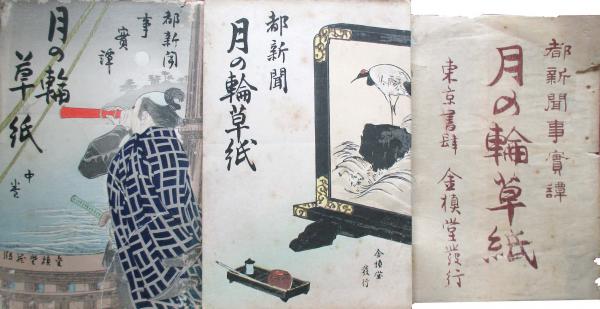 都新聞
事實譚
月の輪
草紙
中巻
金槙堂發版
都新聞
月の輪草紙
金槙堂
發行
都新聞事實譚
月の輪草紙
東京書肆 金槙堂發行